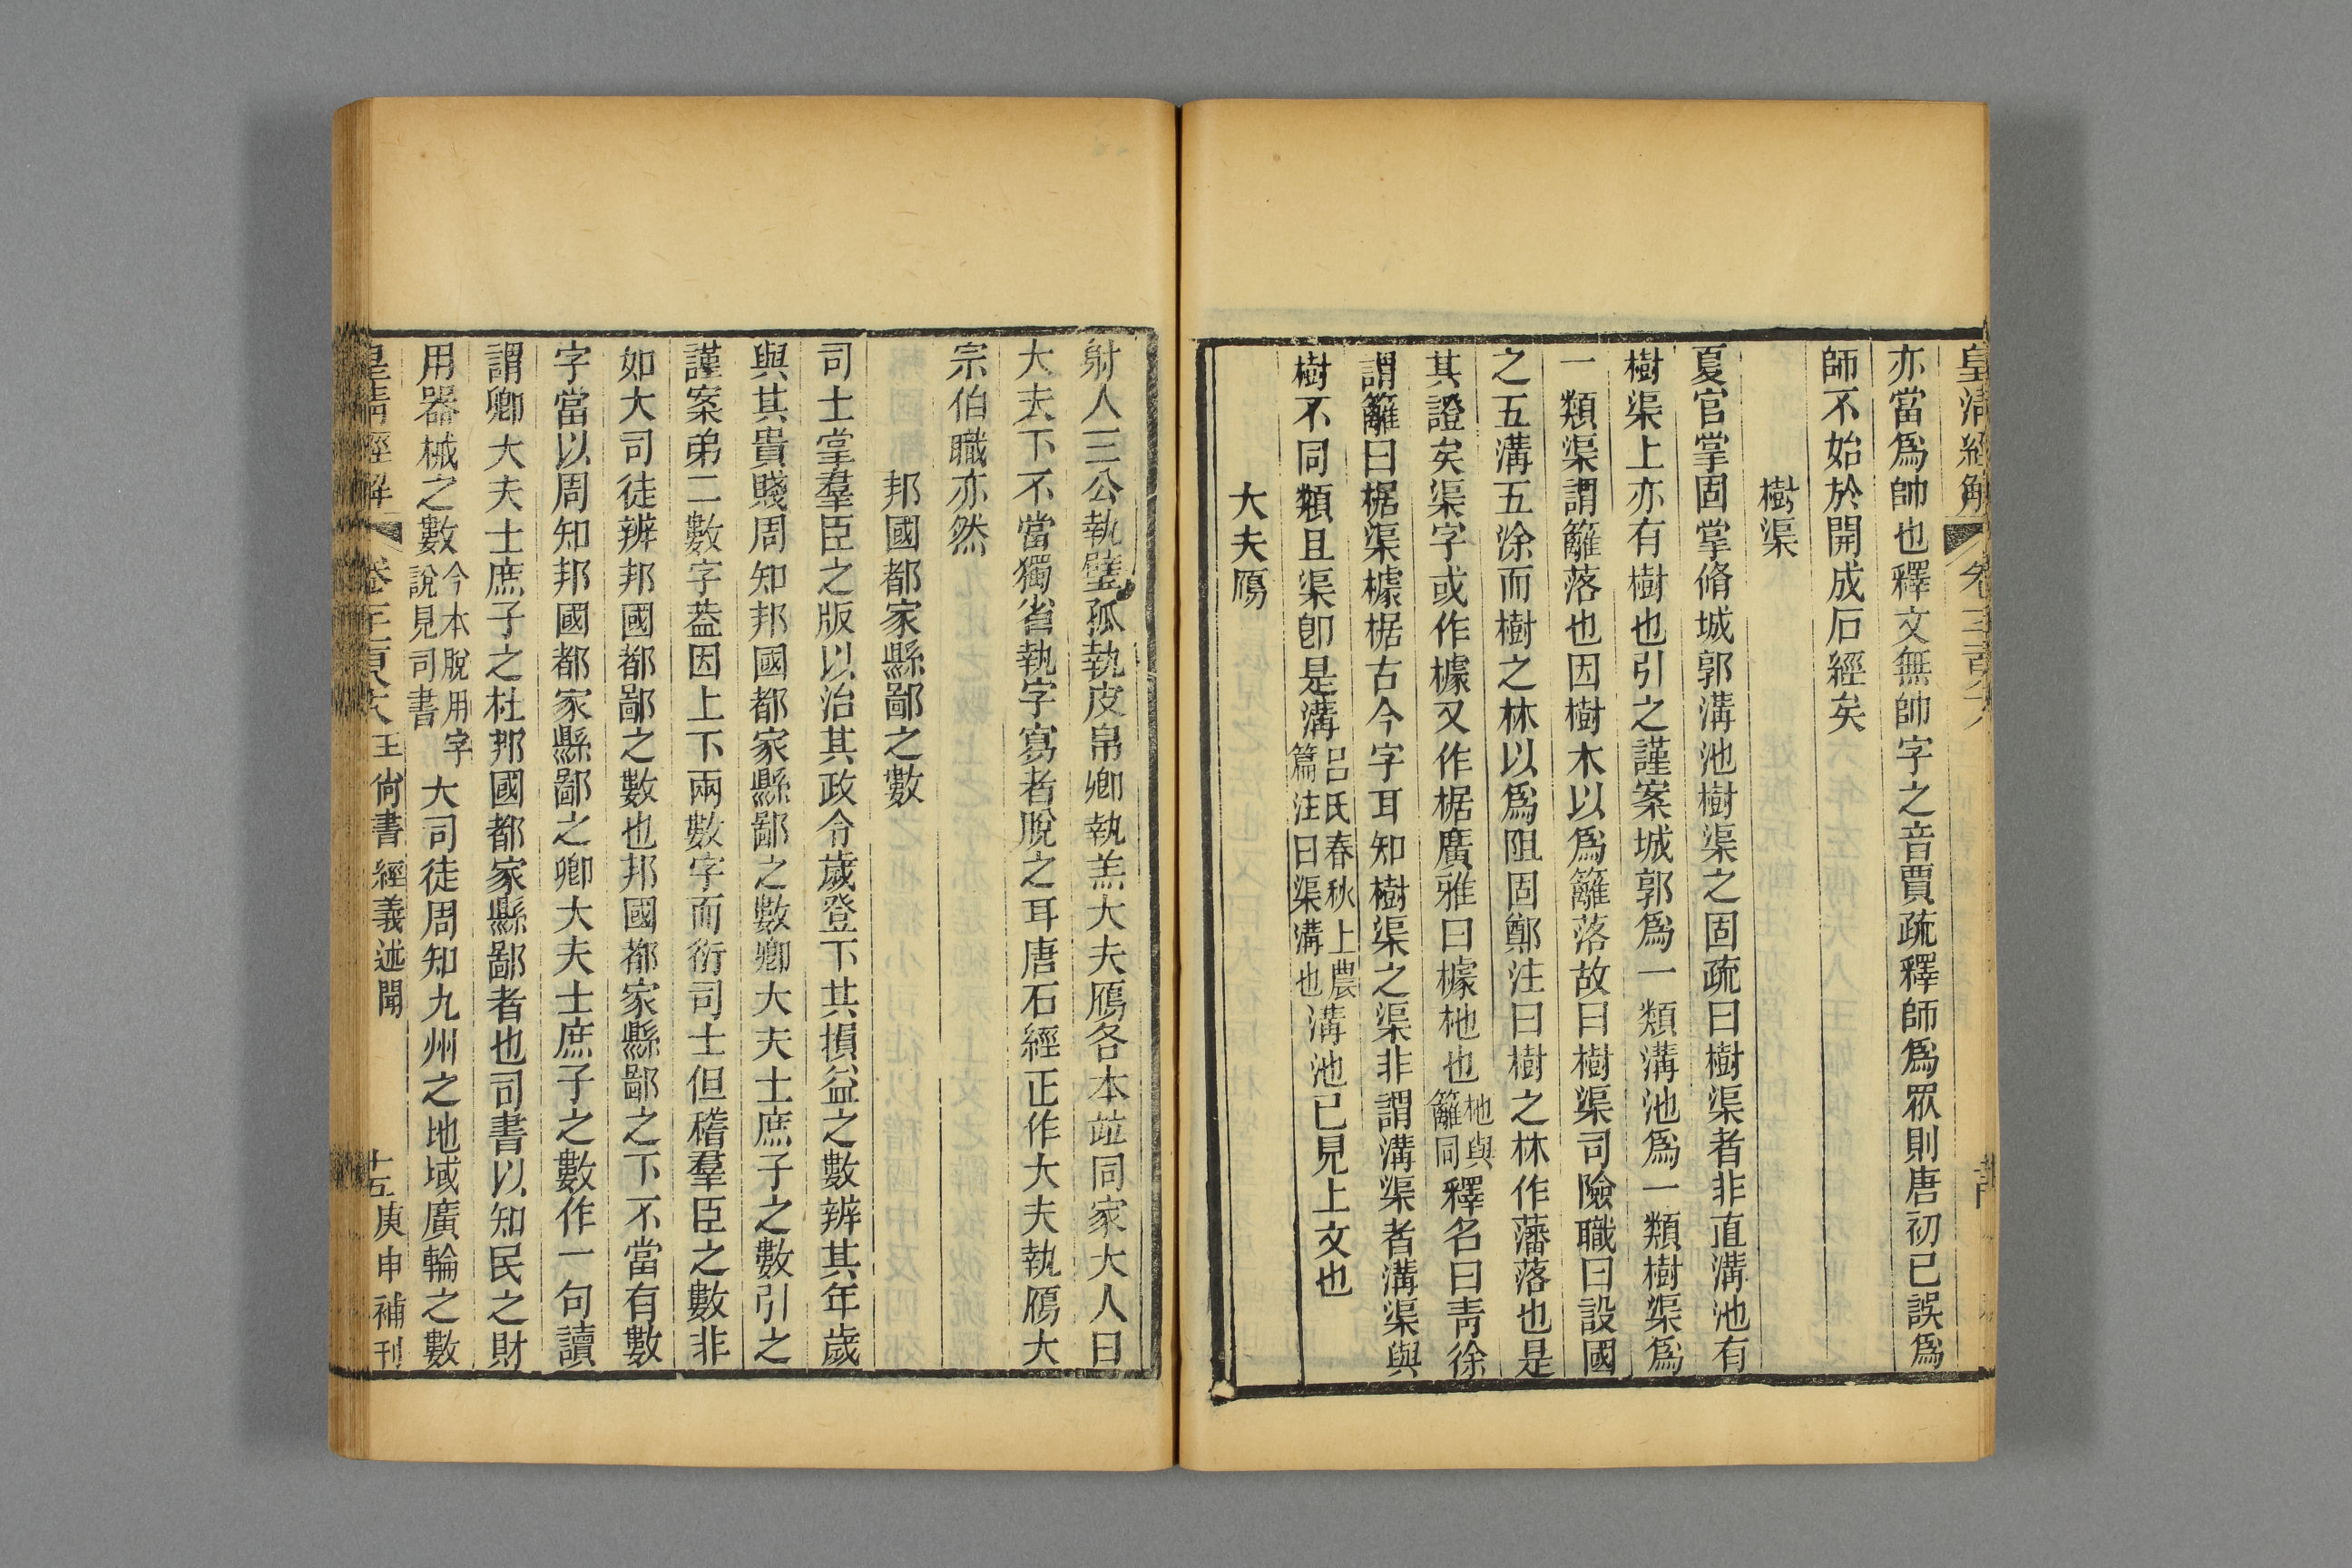 皇清經解 卷一千一百八
亦當爲帥也釋文無帥字之音賈疏釋師爲眾則唐初已誤爲
師不始於開成石經矣
樹渠
夏官掌固掌脩城郭溝池樹渠之固疏曰樹渠者非直溝池有
樹渠上亦有樹也引之謹案城郭爲一類溝池爲一類樹渠爲
一類渠謂籬落也因樹木以爲籬落故曰樹渠司險職曰設國
之五溝五涂而樹之林以爲阻固鄭注曰樹之林作藩落也是
其證矣渠字或作㯫又作椐廣雅曰㯫杝也杝與籬同釋名曰靑徐
謂籬曰椐渠㯫椐古今字耳知樹渠之渠非謂溝渠者溝渠與
樹不同類且渠卽是溝呂氏春秋上農篇注曰渠溝也溝池已見上文也
大夫鴈
射人三公執璧孤執皮帛卿執羔大夫鴈各本竝同家大人曰
大夫下不當獨省執字寫者脫之耳唐石經正作大夫執鴈大
宗伯職亦然
邦國都家縣鄙之數
司士掌羣臣之版以治其政令歲登下其損益之數辨其年歲
與其貴賤周知邦國都家縣鄙之數卿大夫士庶子之數引之
謹案弟二數字葢因上下兩數字而衍司士但稽羣臣之數非
如大司徒辨邦國都鄙之數也邦國都家縣鄙之下不當有數
字當以周知邦國都家縣鄙之卿大夫士庶子之數作一句讀
謂卿大夫士庶子之在邦國都家縣鄙者也司書以知民之財
用器械之數今本脫用字說見司書大司徒周知九州之地域廣輪之數
皇清經解 王尙書經義述聞 庚申補刊